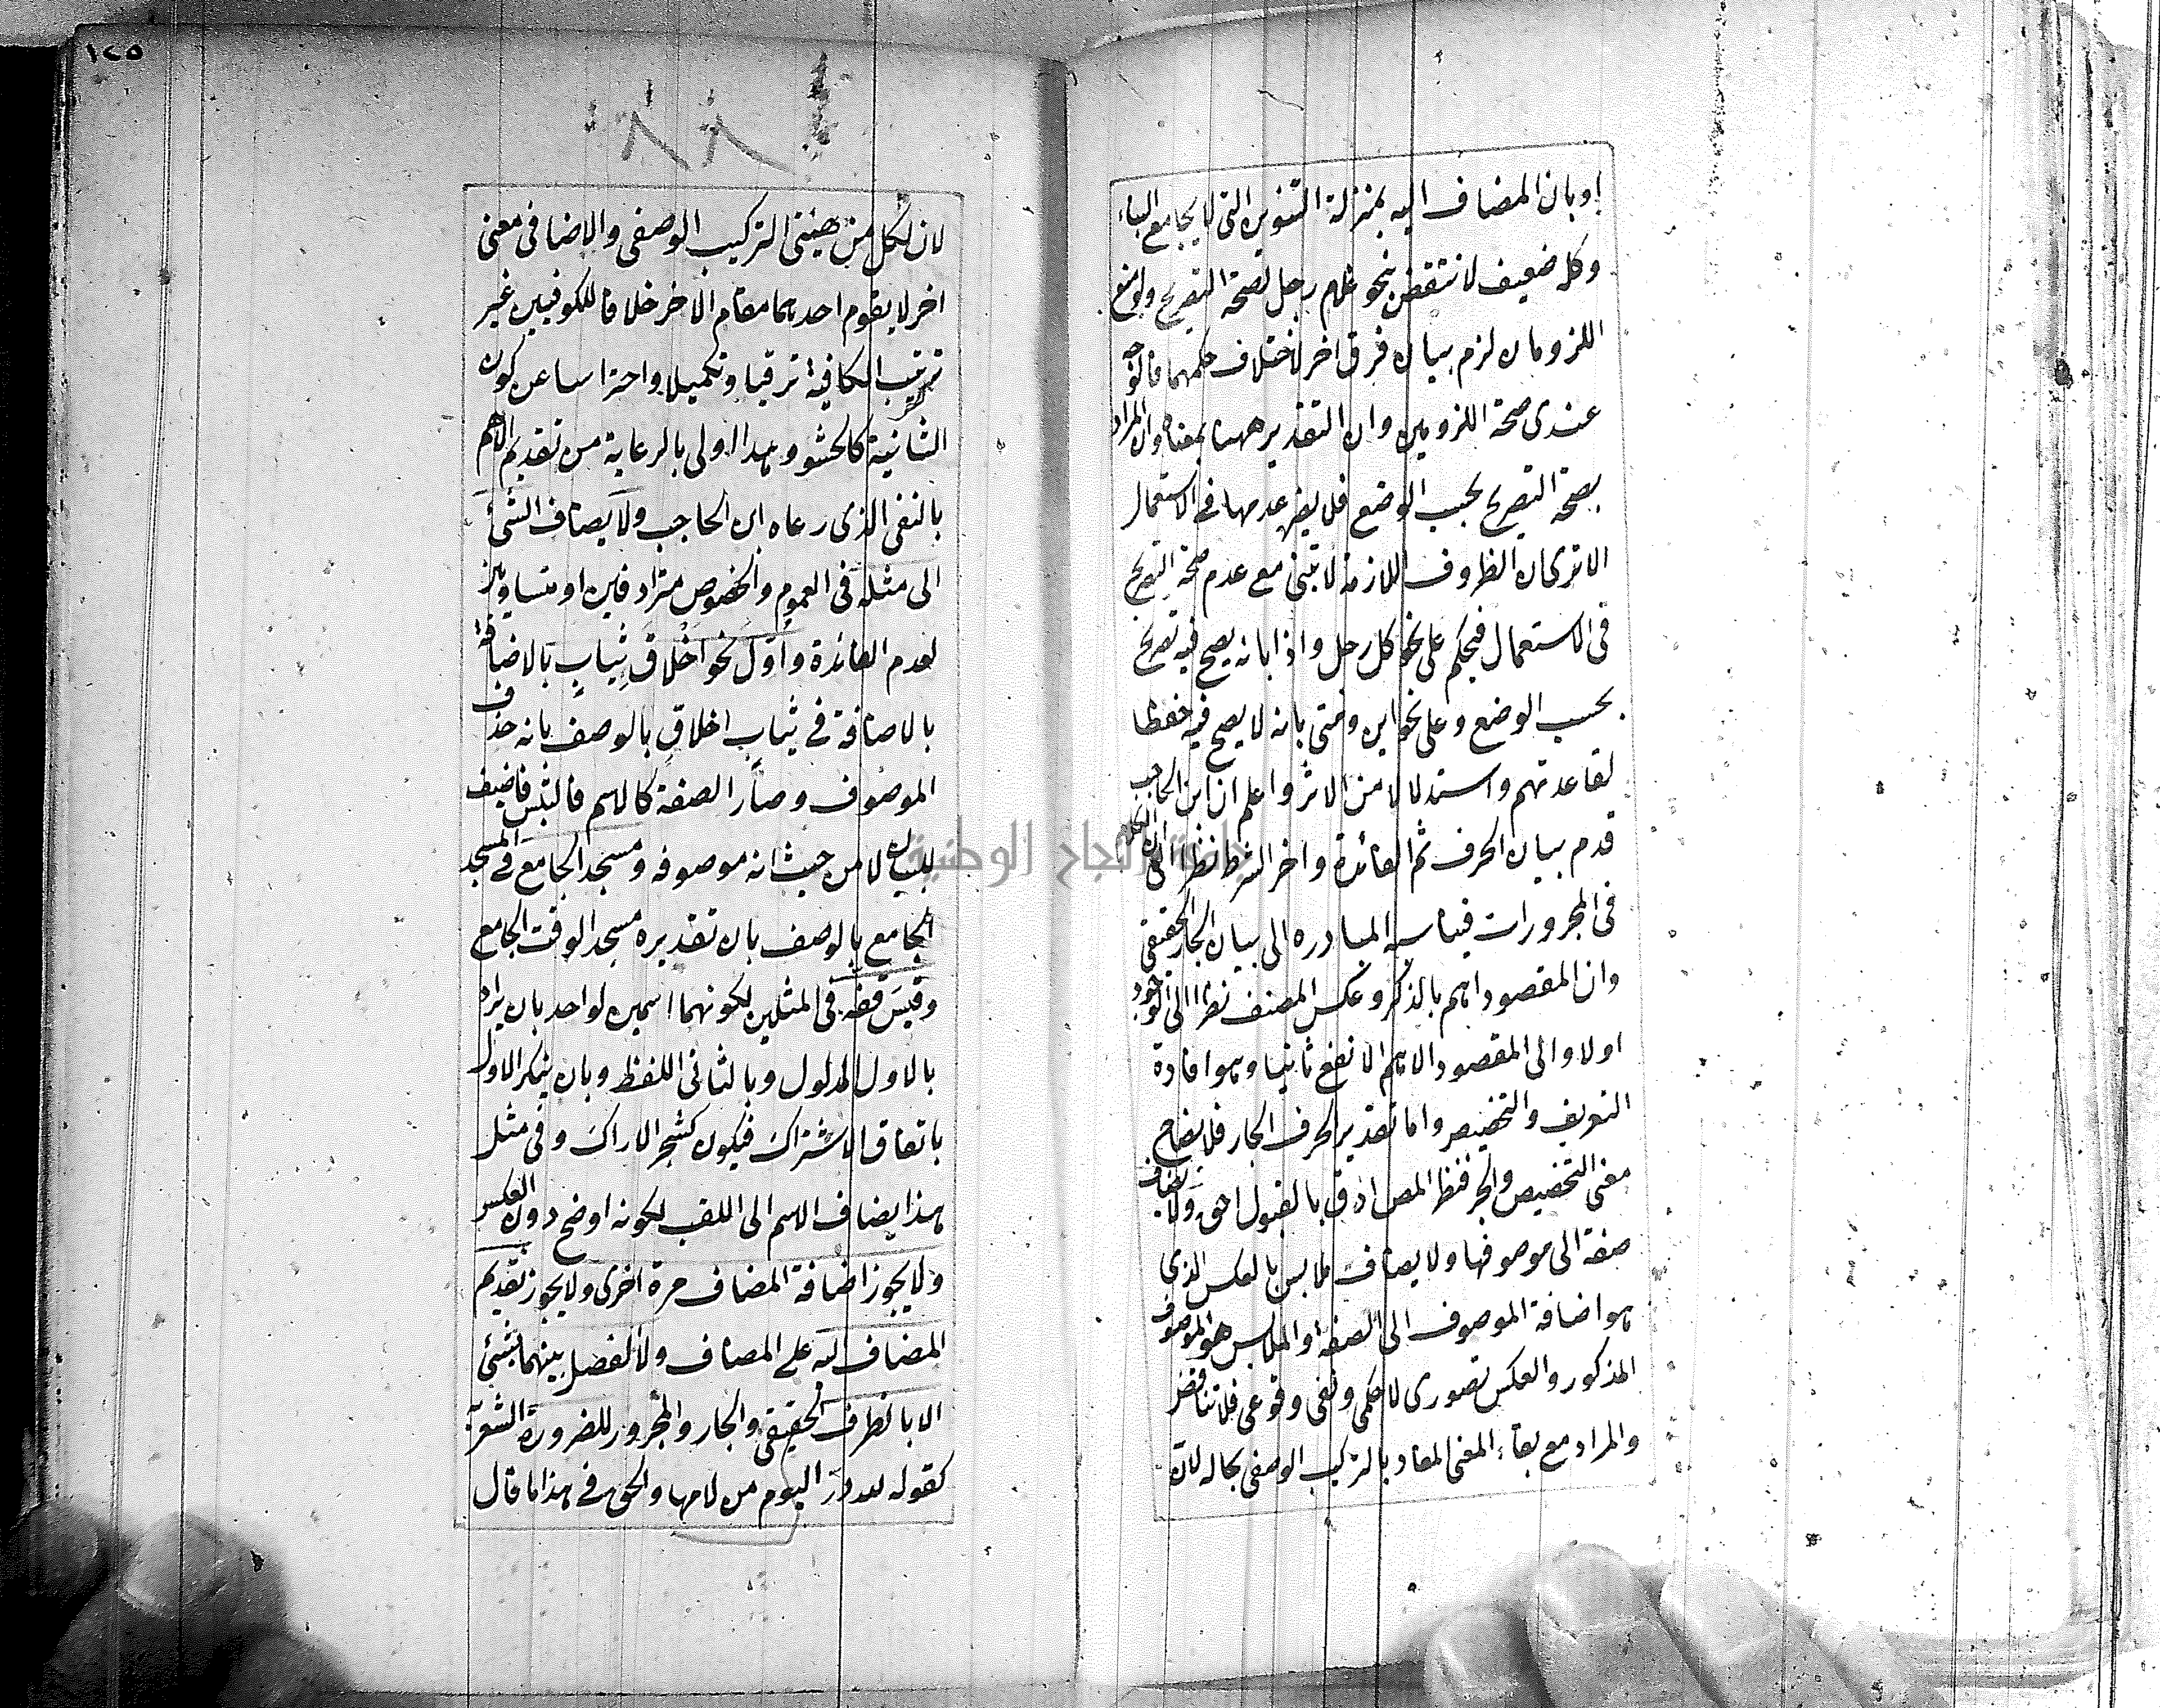 اوبان المضاف اليه بمنزلة التنوين التى لا يجامع البناء
وكل ضعيف لانتقض بنحو غلام رجل لصحة التصريح ولو منع
اللزومان لزم بيان فرق اخر لاختلاف حكمهما فالوجه
عندى صحة اللزومين وان التقدير ههنا بمعناه وان المراد
بصحة التصريح بحسب الوضع فلا يضر عدمها فى الاستعمال
الا ترى ان الظروف اللازمة لا تبنى مع عدم صحة التصريح
فى الاستعمال فيحكم على نحو كل رجل واذا بانه يصح فيه تصريح
بحسب الوضع وعلى نحو اين ومتى بانه لا يصح فيه حفظا
لقاعدتهم واستدلالا من الاثر واعلم ان ابن الحاجب
قدم بيان الحرف ثم الفائدة واخر الشرط نظرا الى ان الكلام
فى المجرورات فيناسبه المبادره الى بيان الجار الحقيقى
وان المقصود اهم بالذكر وعكس المصنف نظرا الى الوجود
اولا والى المقصود الاهم الانفع ثانيا وهو افادة
التعريف والتخصيص واما تقدير الحرف الجار فلايضاح
معنى التخصيص والجر فنظر المص ادق بالقبول احق ولا يضاف
صفة الى موصوفها ولا يضاف ملابس بالعكس الذى
هو اضافة الموصوف الى الصفة او الملابس هو الموصوف
المذكور والعكس تصورى لا حكمى ونفى وقوعى فلا تناقض
والمراد مع بقاء المعنى المفاد بالتركيب الوصفى بحاله لان
١٢٥
٨٨
لان لكل من هيئتى التركيب الوصفى والاضافى معنى
اخر لا يقوم احدهما مقام الاخر خلافا للكوفيين غير
ترتيب الكافية ترقيا وتكميلا واحتراسا عن كون
الثانية كالحشو وهذا اولى بالرعاية من تقديم الاهم
بالنفى الذى رعاه ابن الحاجب ولا يضاف الشئ
الى مثله فى العموم والخصوص مترادفين او متساويين
لعدم الفائدة واول نحو اخلاق ثياب بالاضافة
بالاضافة فى ثياب اخلاق بالوصف بانه حذف
الموصوف وصار الصفة كالاسم فالتبس فاضيف
للبيان لا من حيث انه موصوفه ومسجد الجامع فى المسجد
الجامع بالوصف بان تقديره مسجد الوقت الجامع
وقيس قفه فى المثلين لكونهما اسمين لواحد بان يراد
بالاول المدلول وبالثانى اللفظ وبان ينكر الاول
باتفاق الاشتراك فيكون كشجر الاراك وفى مثل
هذا يضاف الاسم الى اللقب لكونه اوضح دون العكس
ولا يجوز اضافة المضاف مرة اخرى ولا يجوز تقديم
المضاف اليه على المضاف ولا الفصل بينهما بشئ
الا بالظرف الحقيقى والجار والمجرور للضرورة الشعرية
كقوله لله در اليوم من لامها والحق فى هذا ما قال